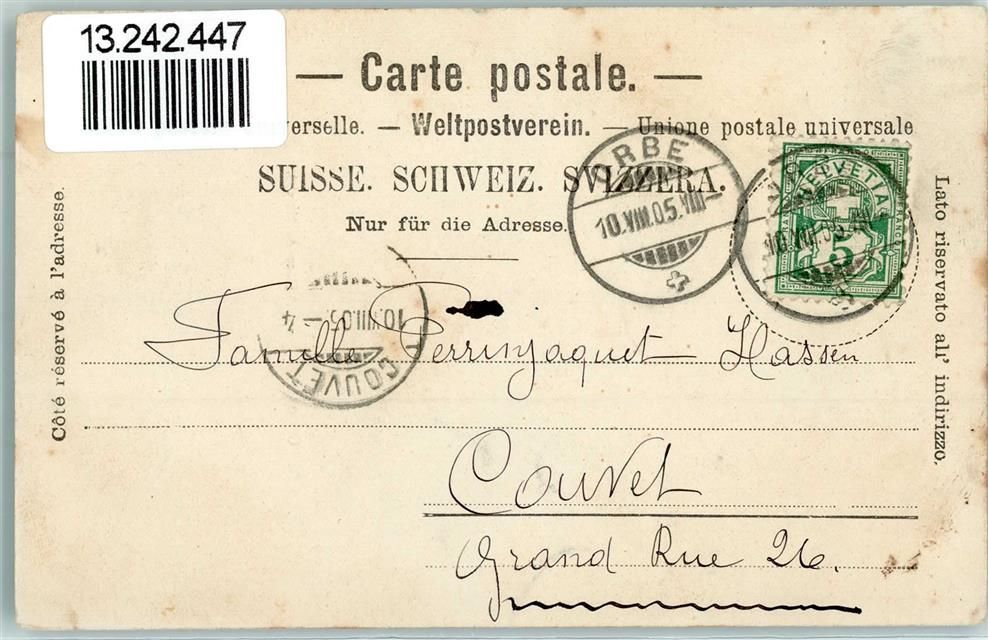 13.242.447
— Carte postale. —
verselle. — Weltpostverein. — Unione postale universale
SUISSE. SCHWEIZ. SVIZZERA.
Nur für die Adresse.
Côté réservé à l'adresse.
Lato riservato all' indirizzo.
ORBE
10.VIII.05.VIII—
HELVETIA
FRANCO
5
10.VIII.05.VIII
10.VIII.05.—4
COUVET
Famille Perrinjaquet Hassen
Couvet
Grand Rue 26.